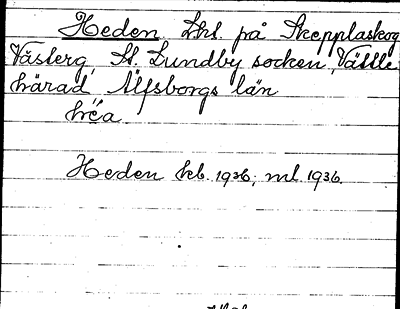 Heden Lht. på Skepplaskog
Västerg, St. Lundby socken, Vättle
härad Älfsborgs län
héa
Heden kb. 1936; ml. 1936.